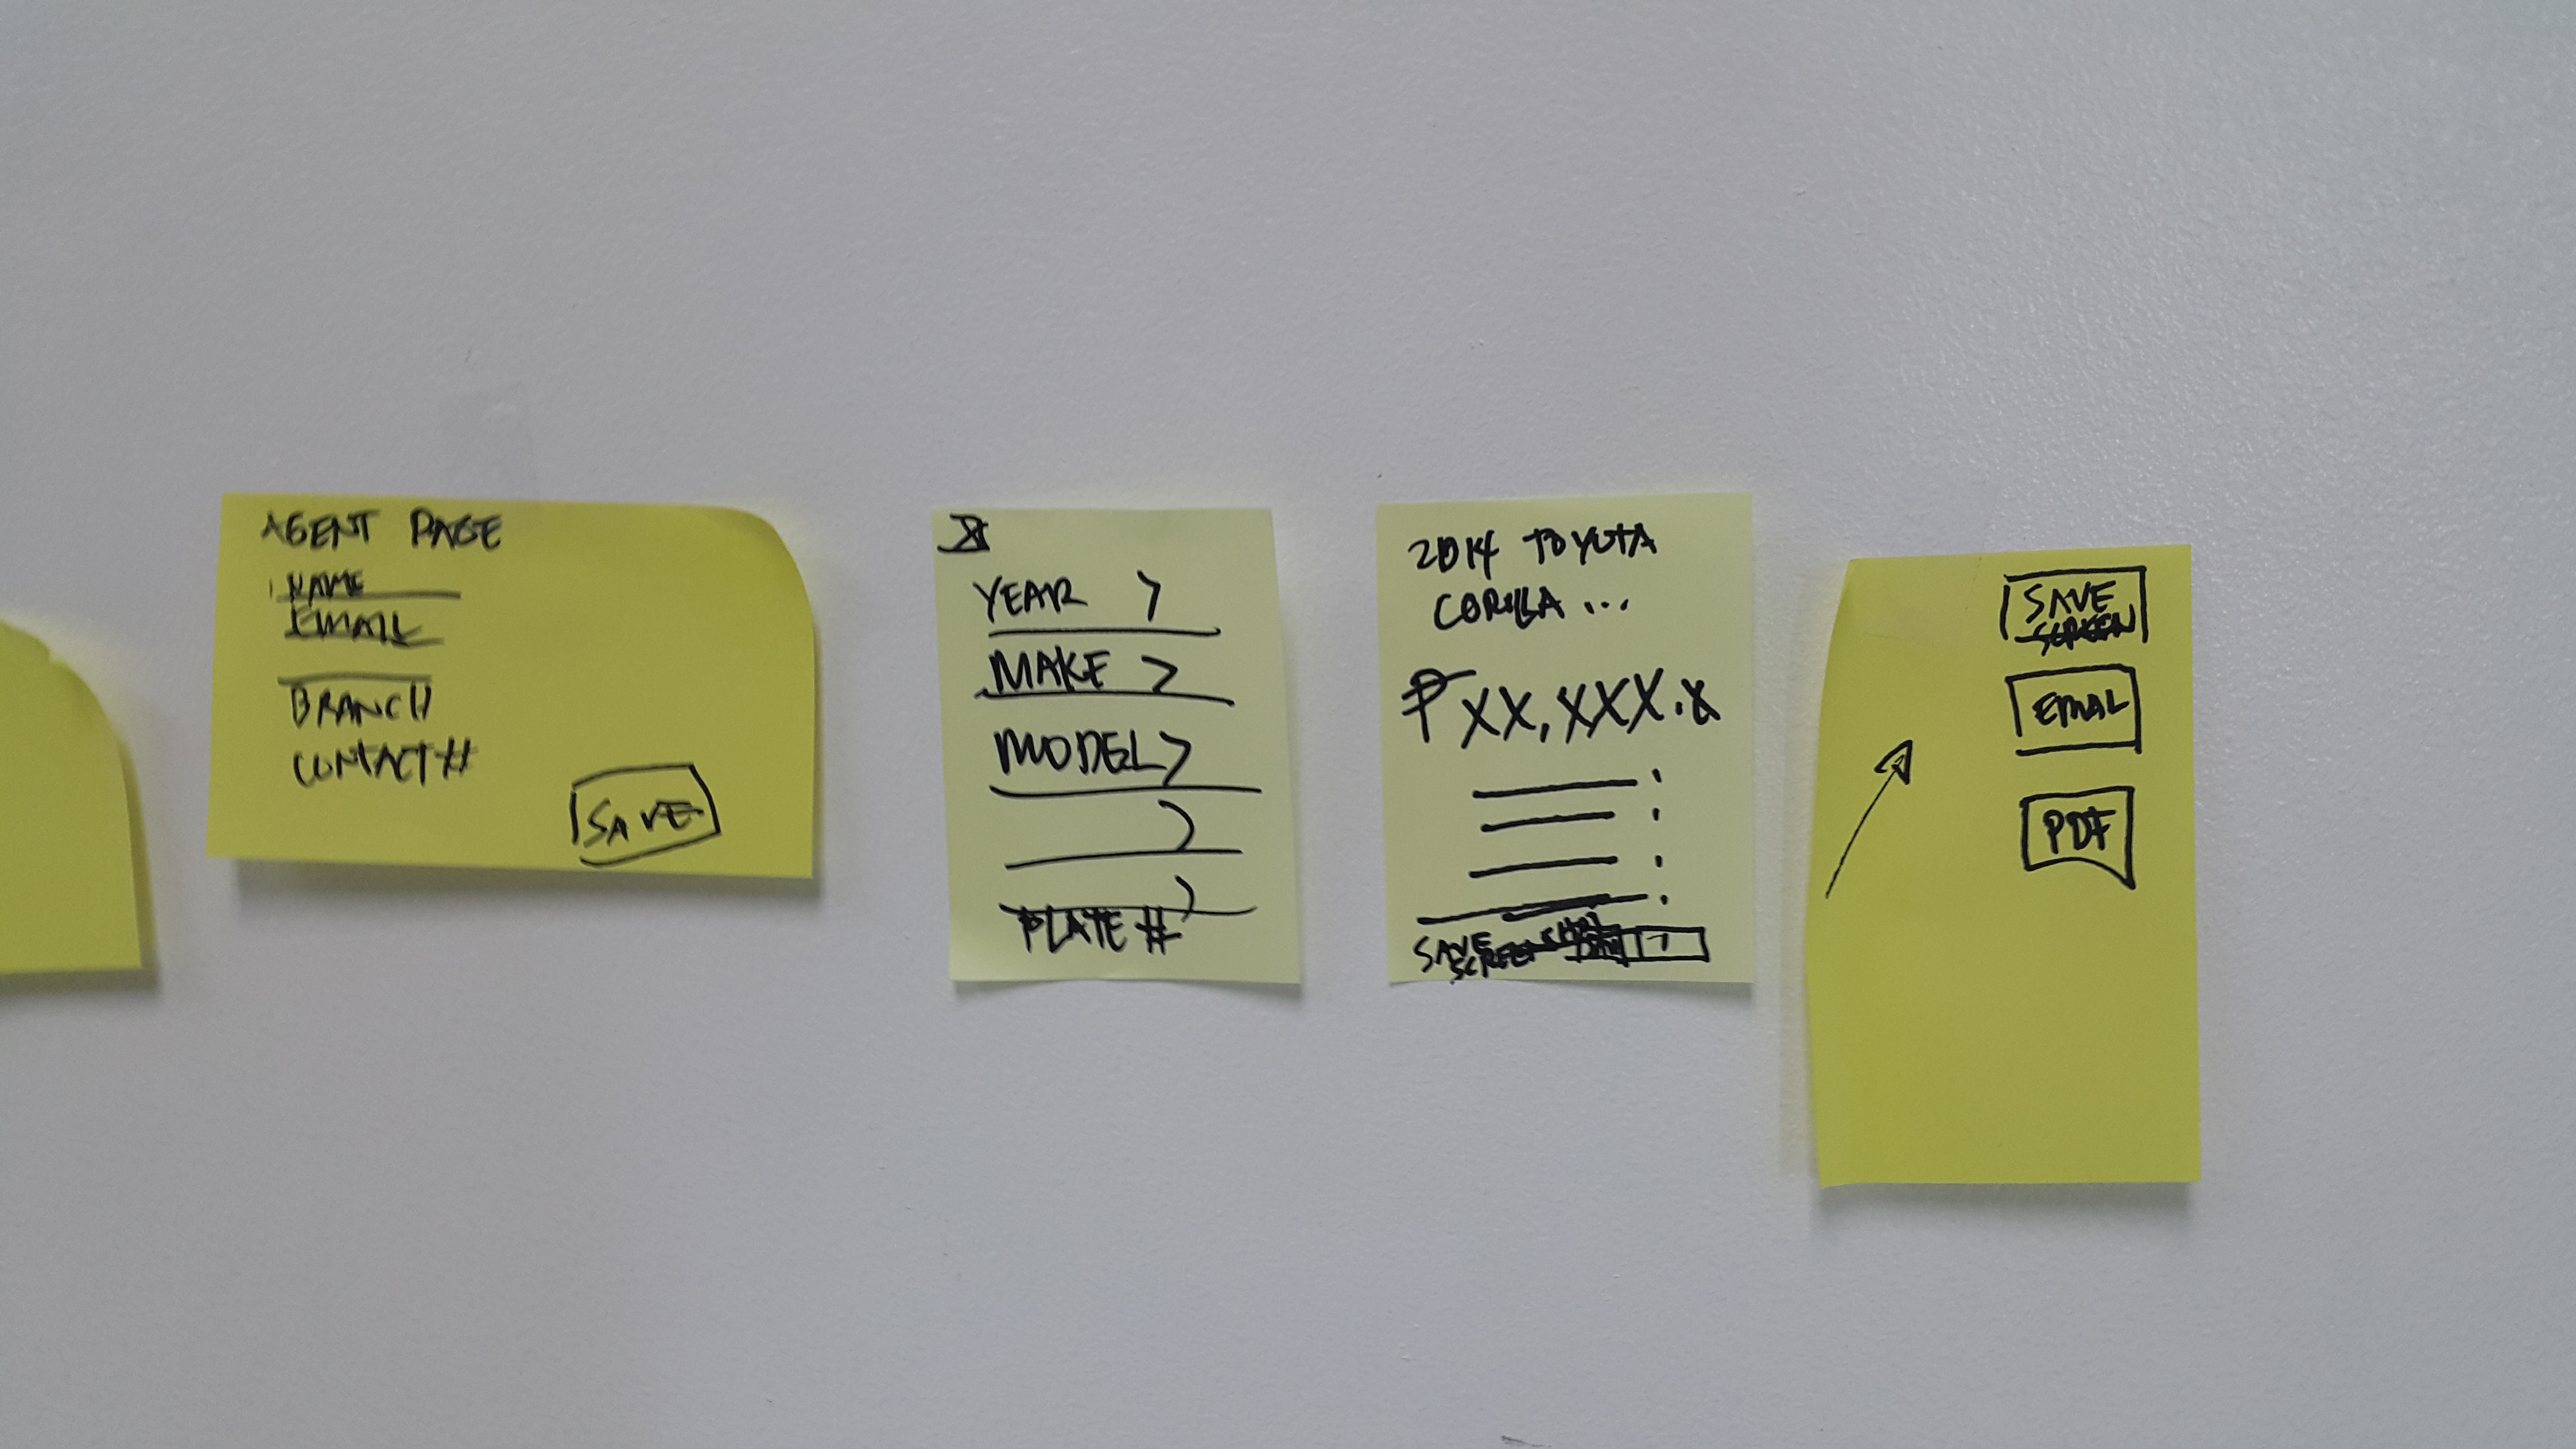 AGENT PAGE
NAME
EMAIL
BRANCH
CONTACT #
SAVE
YEAR >
MAKE >
MODEL >
PLATE #
2014 TOYOTA
COROLLA ...
₱ XX,XXX.X
SAVE
SCREEN
SAVE
SCREEN
EMAIL
PDF